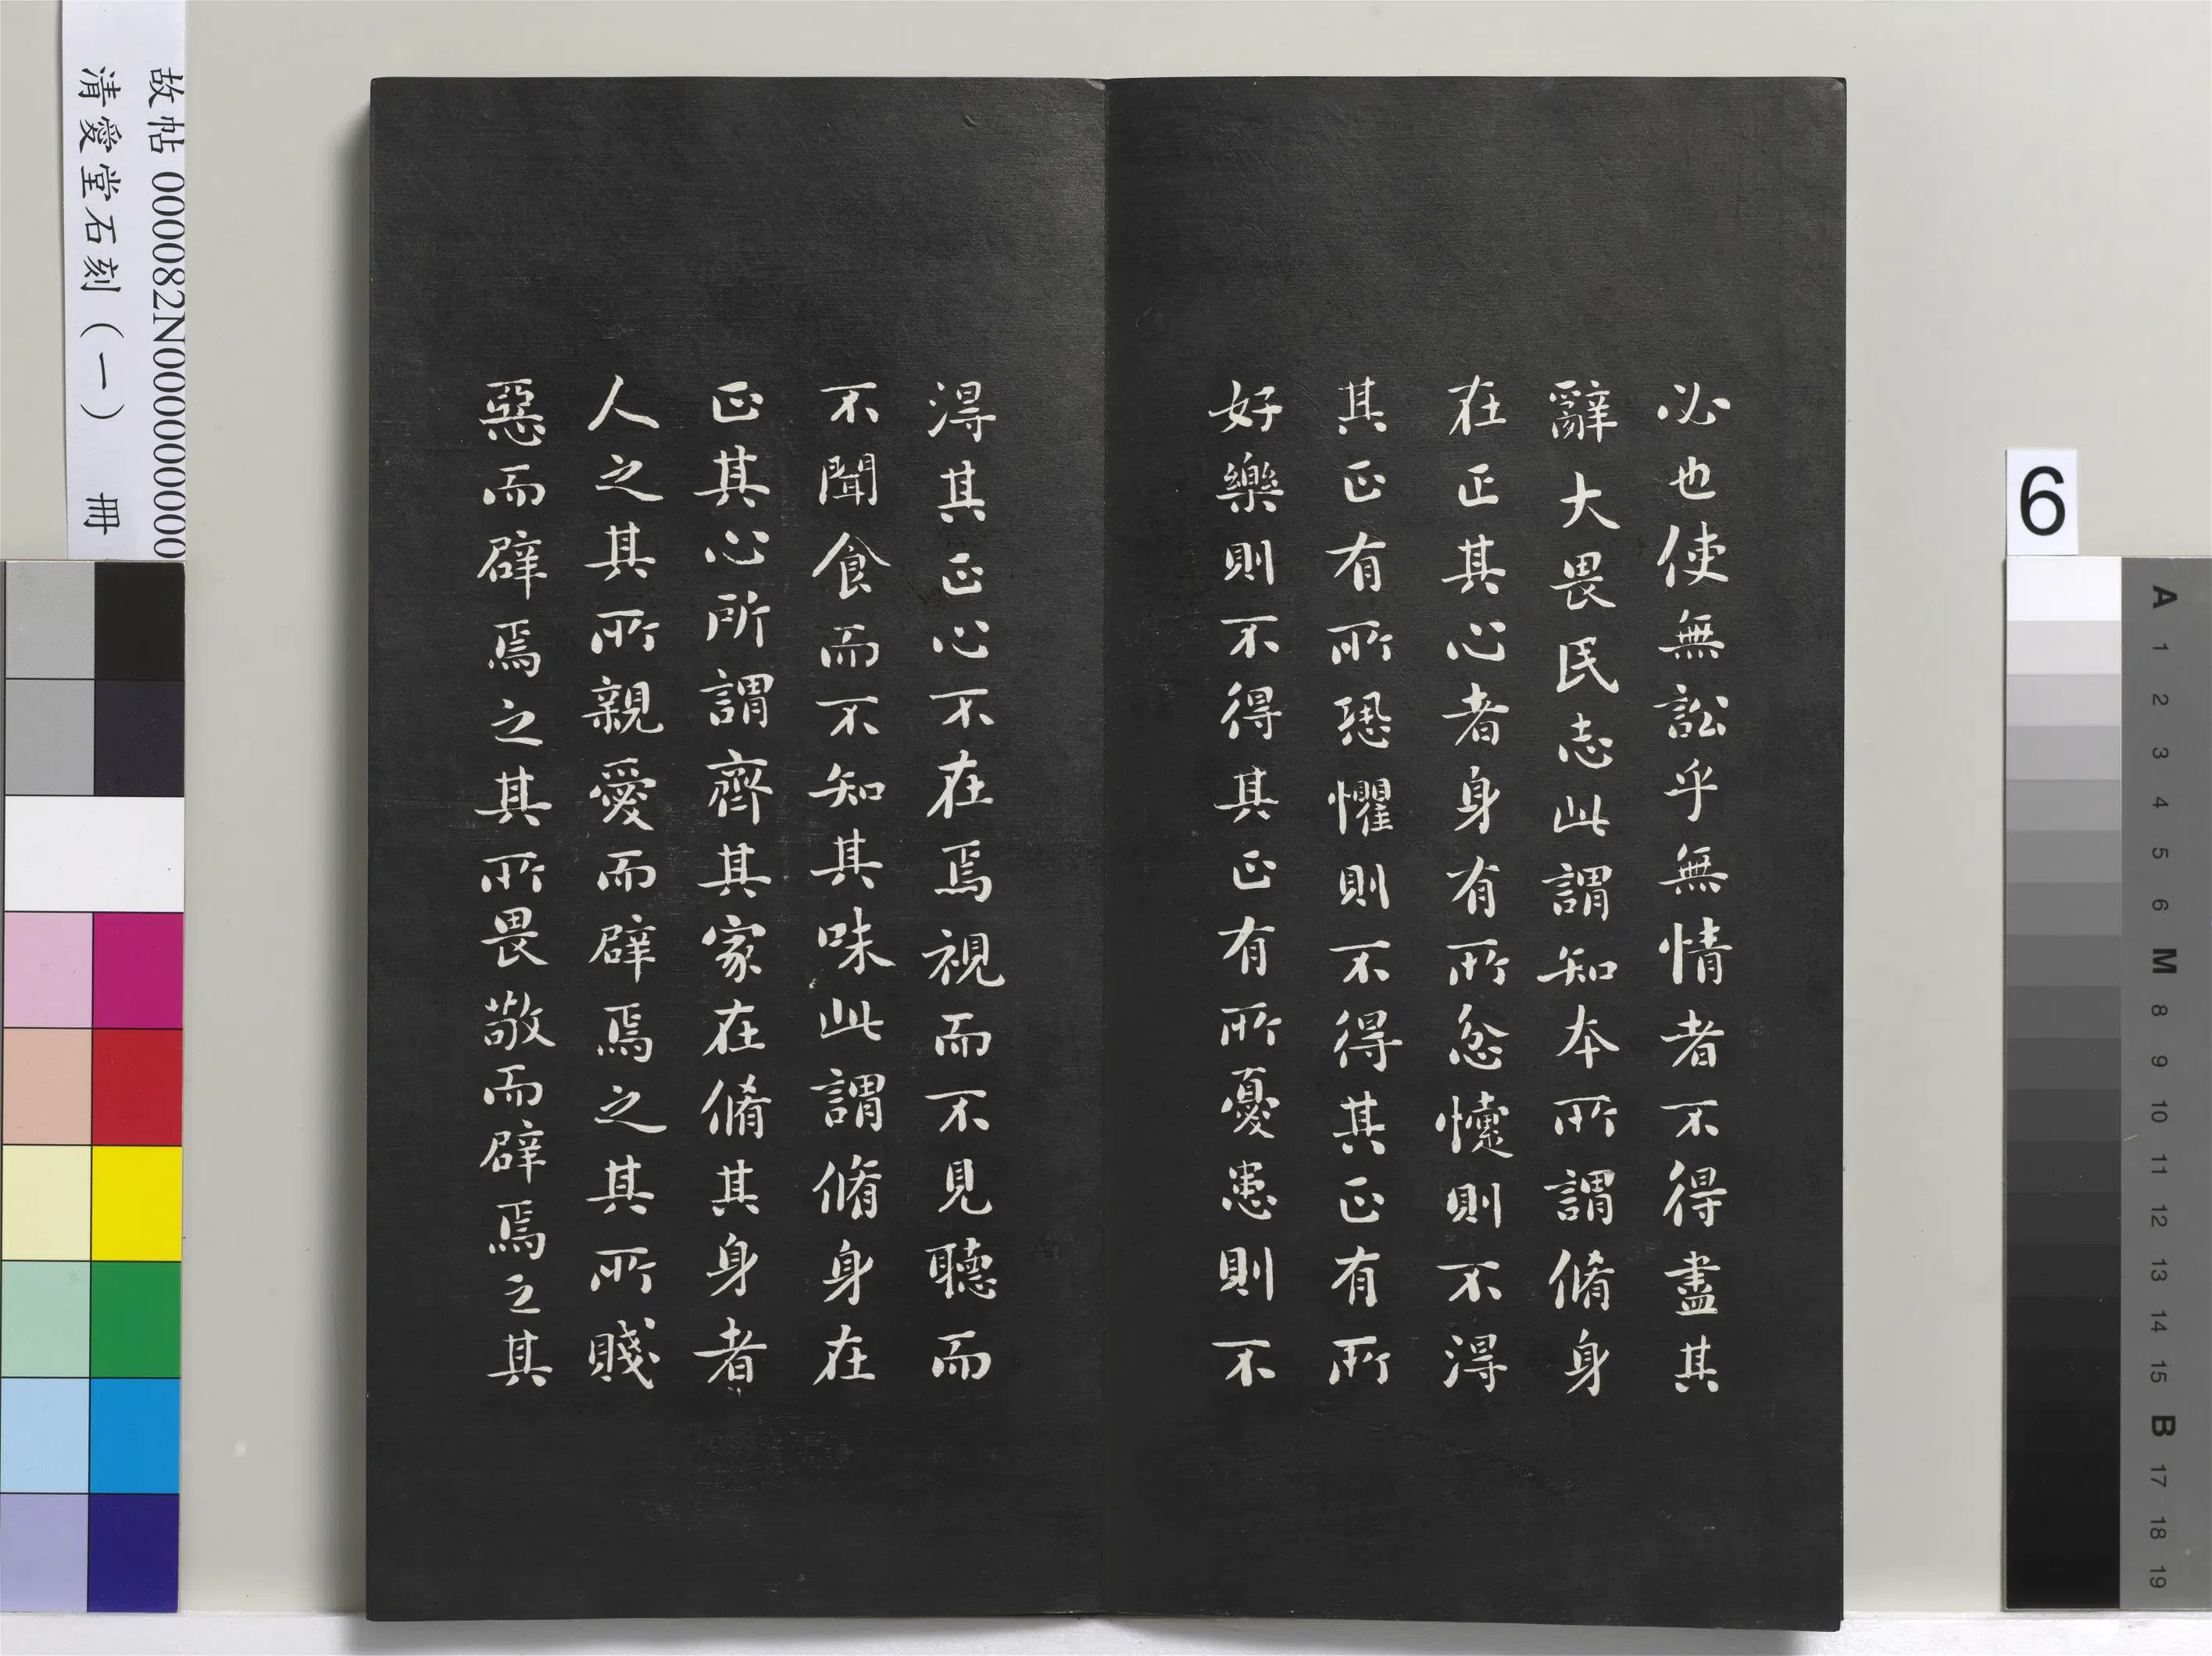 必也使無訟乎無情者不得盡其
辭大畏民志此謂知本所謂脩身
在正其心者身有所忿懥則不得
其正有所恐懼則不得其正有所
好樂則不得其正有所憂患則不
得其正心不在焉視而不見聽而
不聞食而不知其味此謂脩身在
正其心所謂齊其家在脩其身者
人之其所親愛而辟焉之其所賤
惡而辟焉之其所畏敬而辟焉之其
故帖 000082N000000000
清愛堂石刻（一） 冊
6
A
1
2
3
4
5
6
M
8
9
10
11
12
13
14
15
B
17
18
19